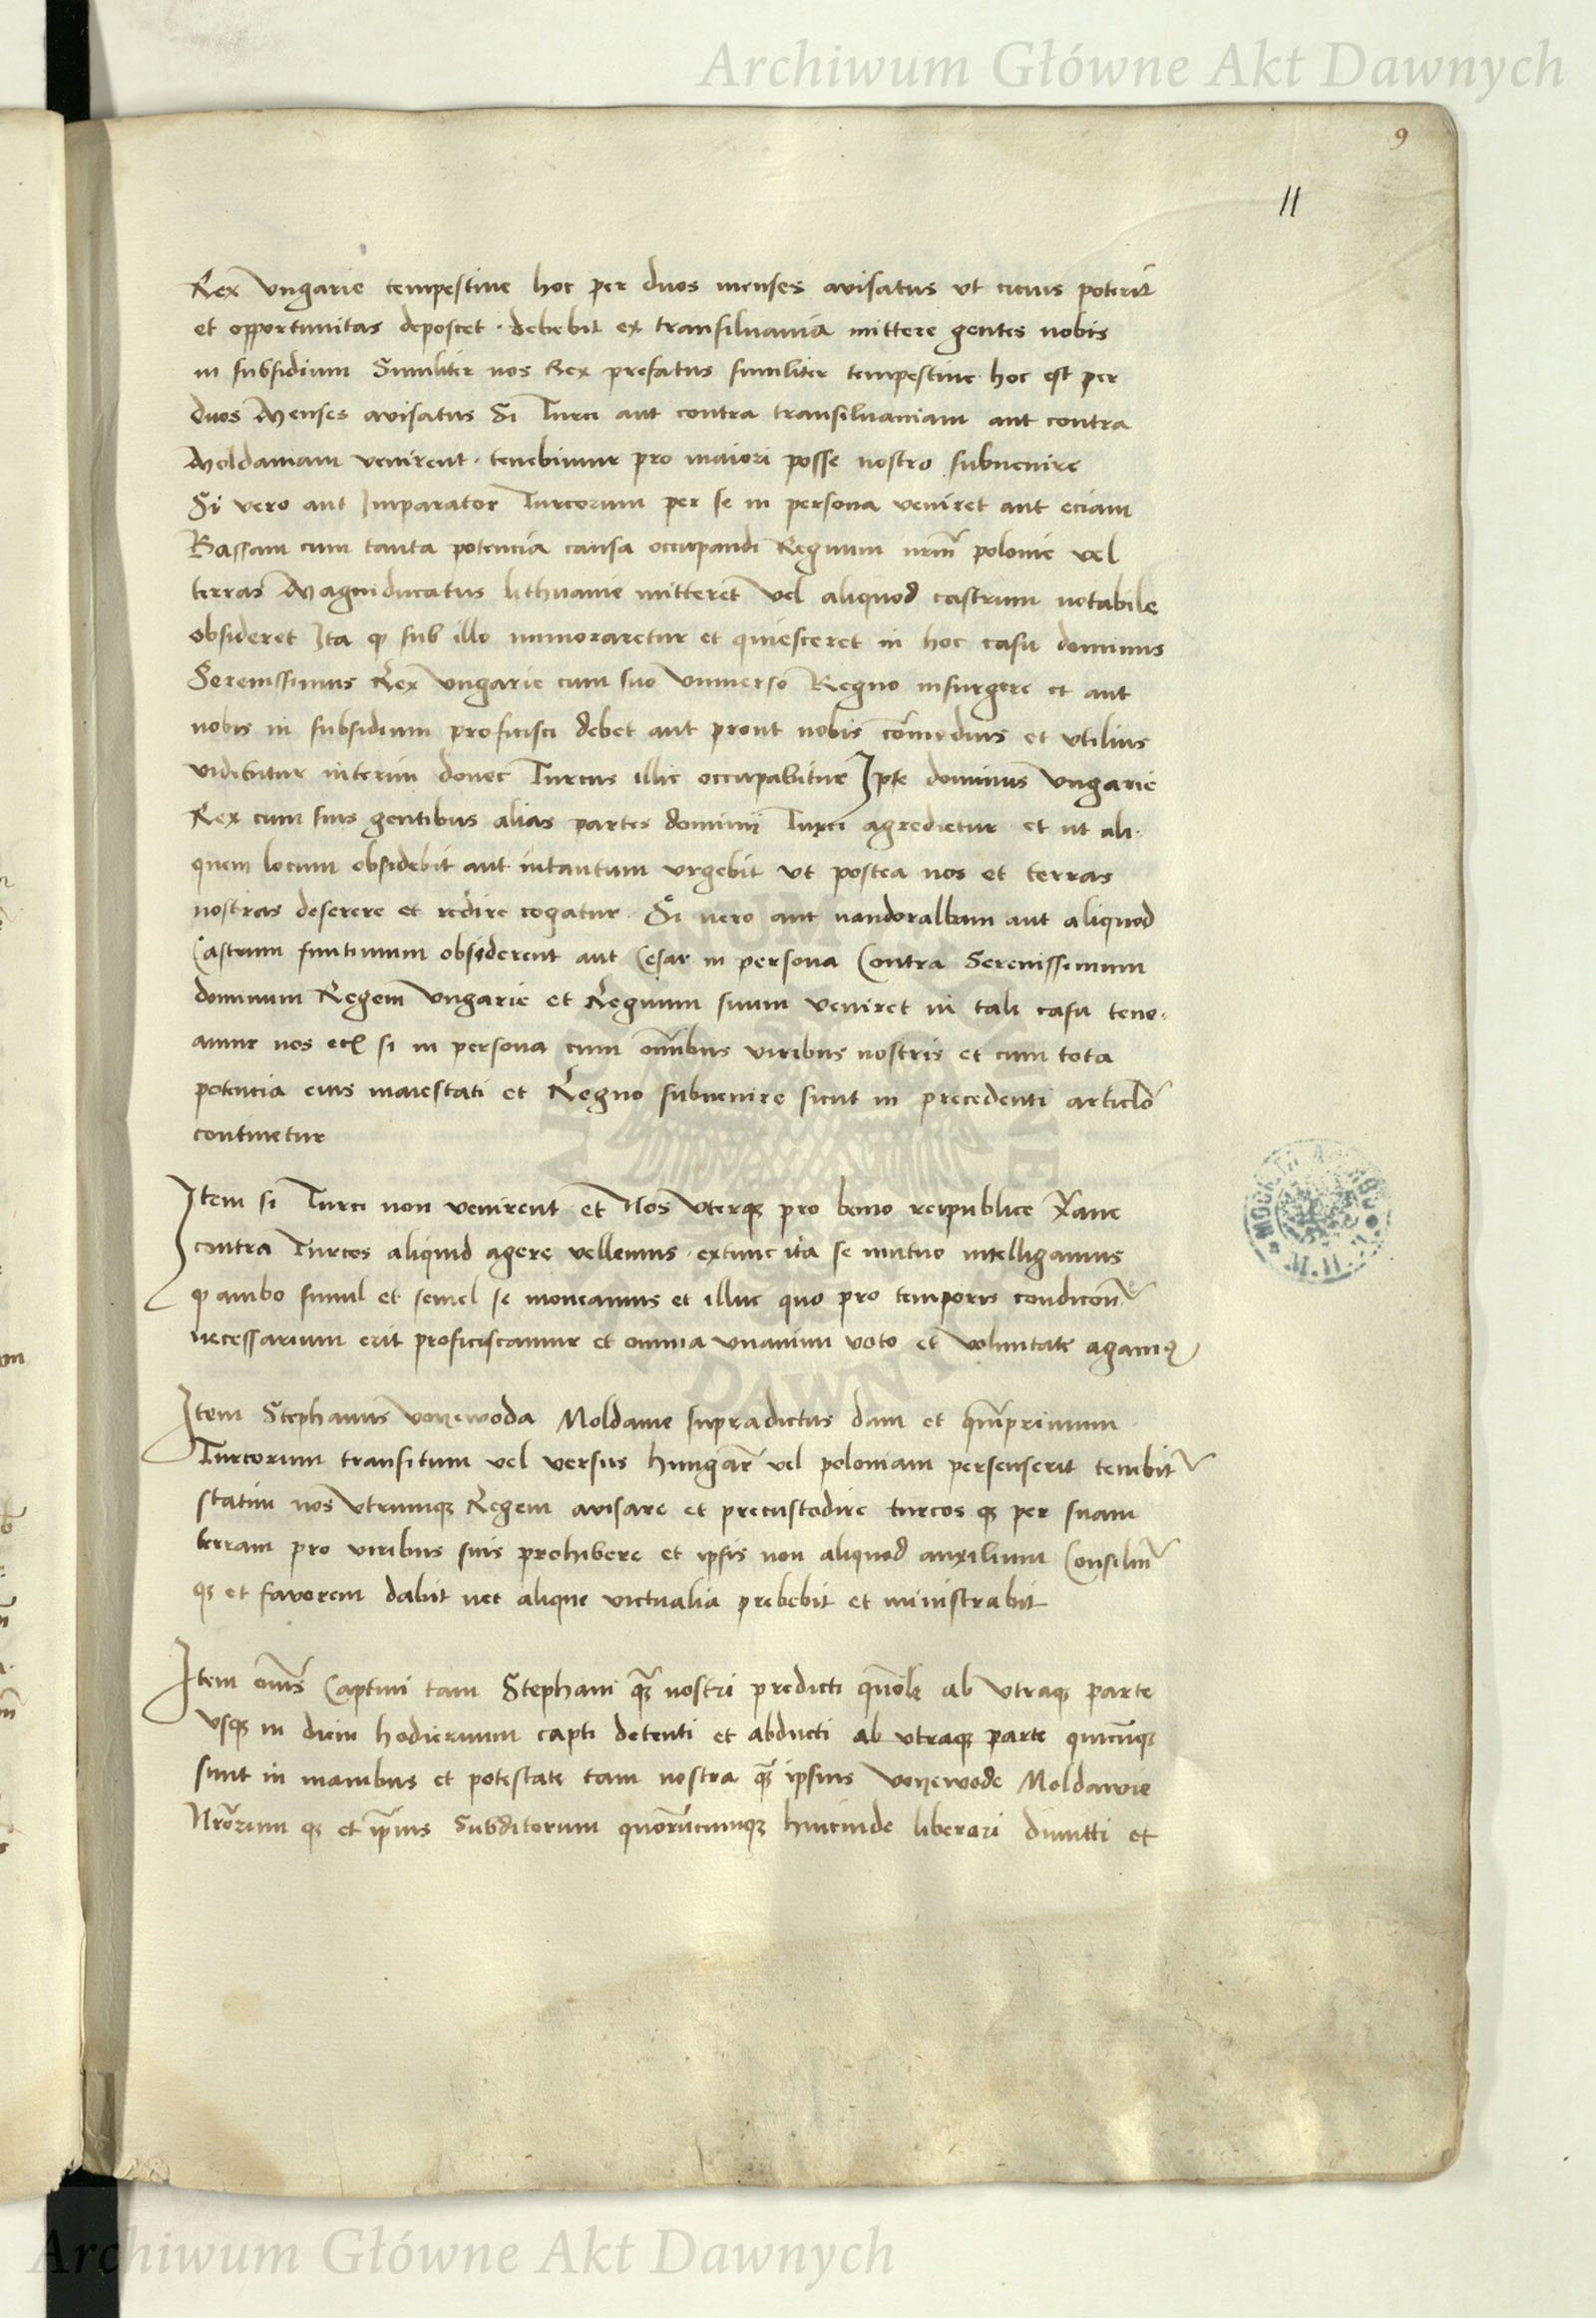 Archiwum Główne Akt Dawnych
9
11
Rex Vngarie tempestiue hoc per duos menses auisatus vt cicius poterit
et opportunitas deposcet · debebit ex transiluania mittere gentes nobis
in subsidium Similiter nos Rex prefatus similiter tempestiue hoc est per
duos Menses auisatus Si Turci aut contra transiluaniam aut contra
Moldauiam venirent · tenebimur pro maiori posse nostro subuenire
Si vero aut Imparator Turcorum per se in persona veniret aut eciam
Bassam cum tanta potencia causa occupandi Regnum nrm̄ polonie vel
terras Magniducatus lithuanie mitteret Vel aliquod castrum notabile
obsideret Ita ꝙ sub illo immoraretur et quiesceret in hoc casu dominus
Serenissimus Rex Vngarie cum suo Vniuerso Regno insurgere et aut
nobis in subsidium proficisci debet aut prout nobis com̄odius et vtilius
videbitur interim donec Turcus illic occupabitur Ip̄e dominus Vngarie
Rex cum suis gentibus alias partes dominii Turci agredietur et ut ali-
quem locum obsidebit aut intantum vrgebit vt postea nos et terras
nostras deserere et redire cogatur · Si uero aut nandoralbam aut aliquod
Castrum finitimum obsiderent aut Cesar in persona Contra Serenissimum
dominum Regem Vngarie et Regnum suum veniret in tali casu tene-
amur nos ecī si in persona cum om̄ibus viribus nostris et cum tota
potencia eius maiestati et Regno subuenire sicut in precedenti articlo
continetur
Item si Turci non venirent et Nos Vterqꝫ pro bono reipublice Xp̄iane
contra Turcos aliquid agere vellemus · extunc ita se mutuo intelligamus
ꝙ ambo simul et semel se moueamus et illuc quo pro temporis condicōn
necessarium erit proficiscamur et omnia vnanimi voto et voluntate agamꝰ
Item Stephanus voyewoda Moldauie supradictus dam et qm̄primum
Turcorum transitum vel versus hungar̄ vel poloniam persenserit tenebit̄
statim nos Vtrumqꝫ Regem auisare et precustodire turcos qꝫ per suam
terram pro viribus suis prohibere et ipsis non aliquod auxilium Consiliū
qꝫ et fauorem dabit nec alique victualia prebebit et ministrabit
Item om̄s Captiui tam Stephani qꝫ nostri predicti ab Vtraqꝫ parte
Vsqꝫ in diem hodiernum capti detenti et abducti ab vtraqꝫ parte quicūqꝫ
sunt in manibus et potestate tam nostra qꝫ ipsius voyewode Moldawie
Nrōrum qꝫ et ip̄ius Subditorum quorūcumqꝫ hincinde liberari dimitti et
Archiwum Główne Akt Dawnych